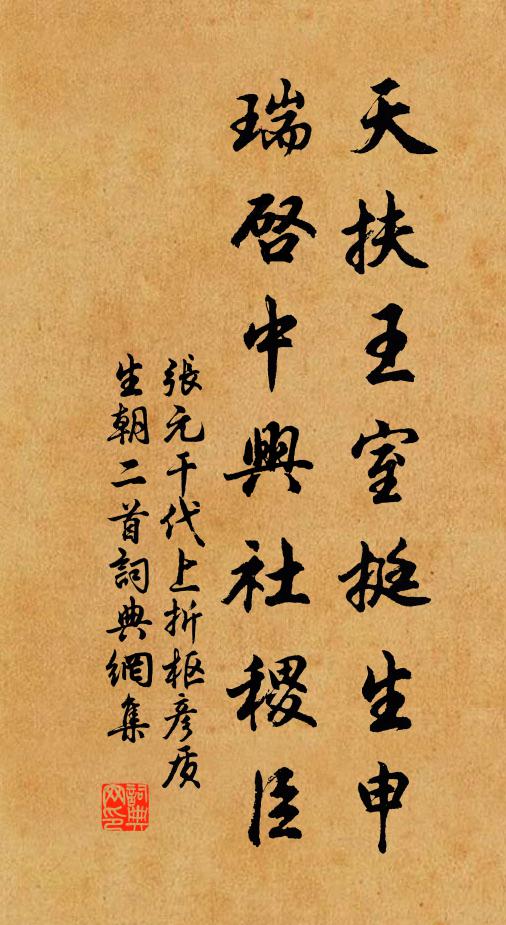 天扶王室挺生申
瑞啓中興社稷臣
張元干代上折枢彦质
生朝二首詞典網集
詞典網印